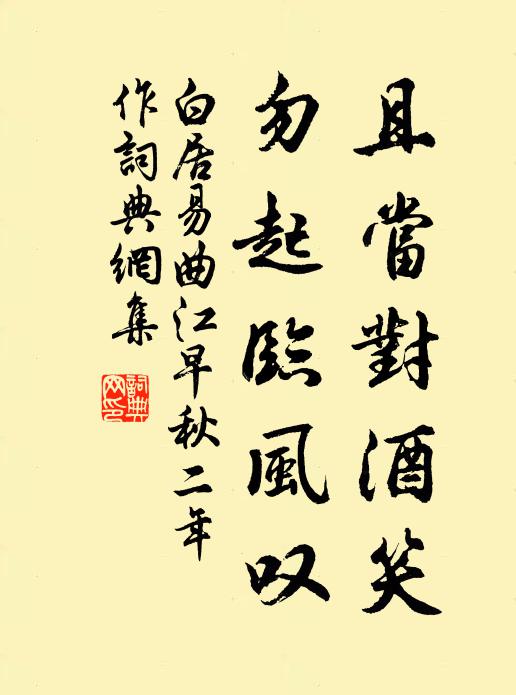 且當對酒笑
勿起臨風叹
白居易曲江早秋二年
作詞典網集
詞典
网印